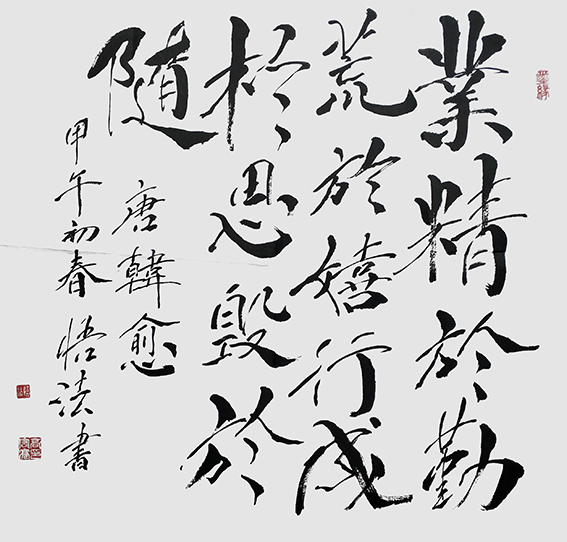 業精於勤
荒於嬉行成
於思毁於
隨
唐韓愈
甲午初春悟法書